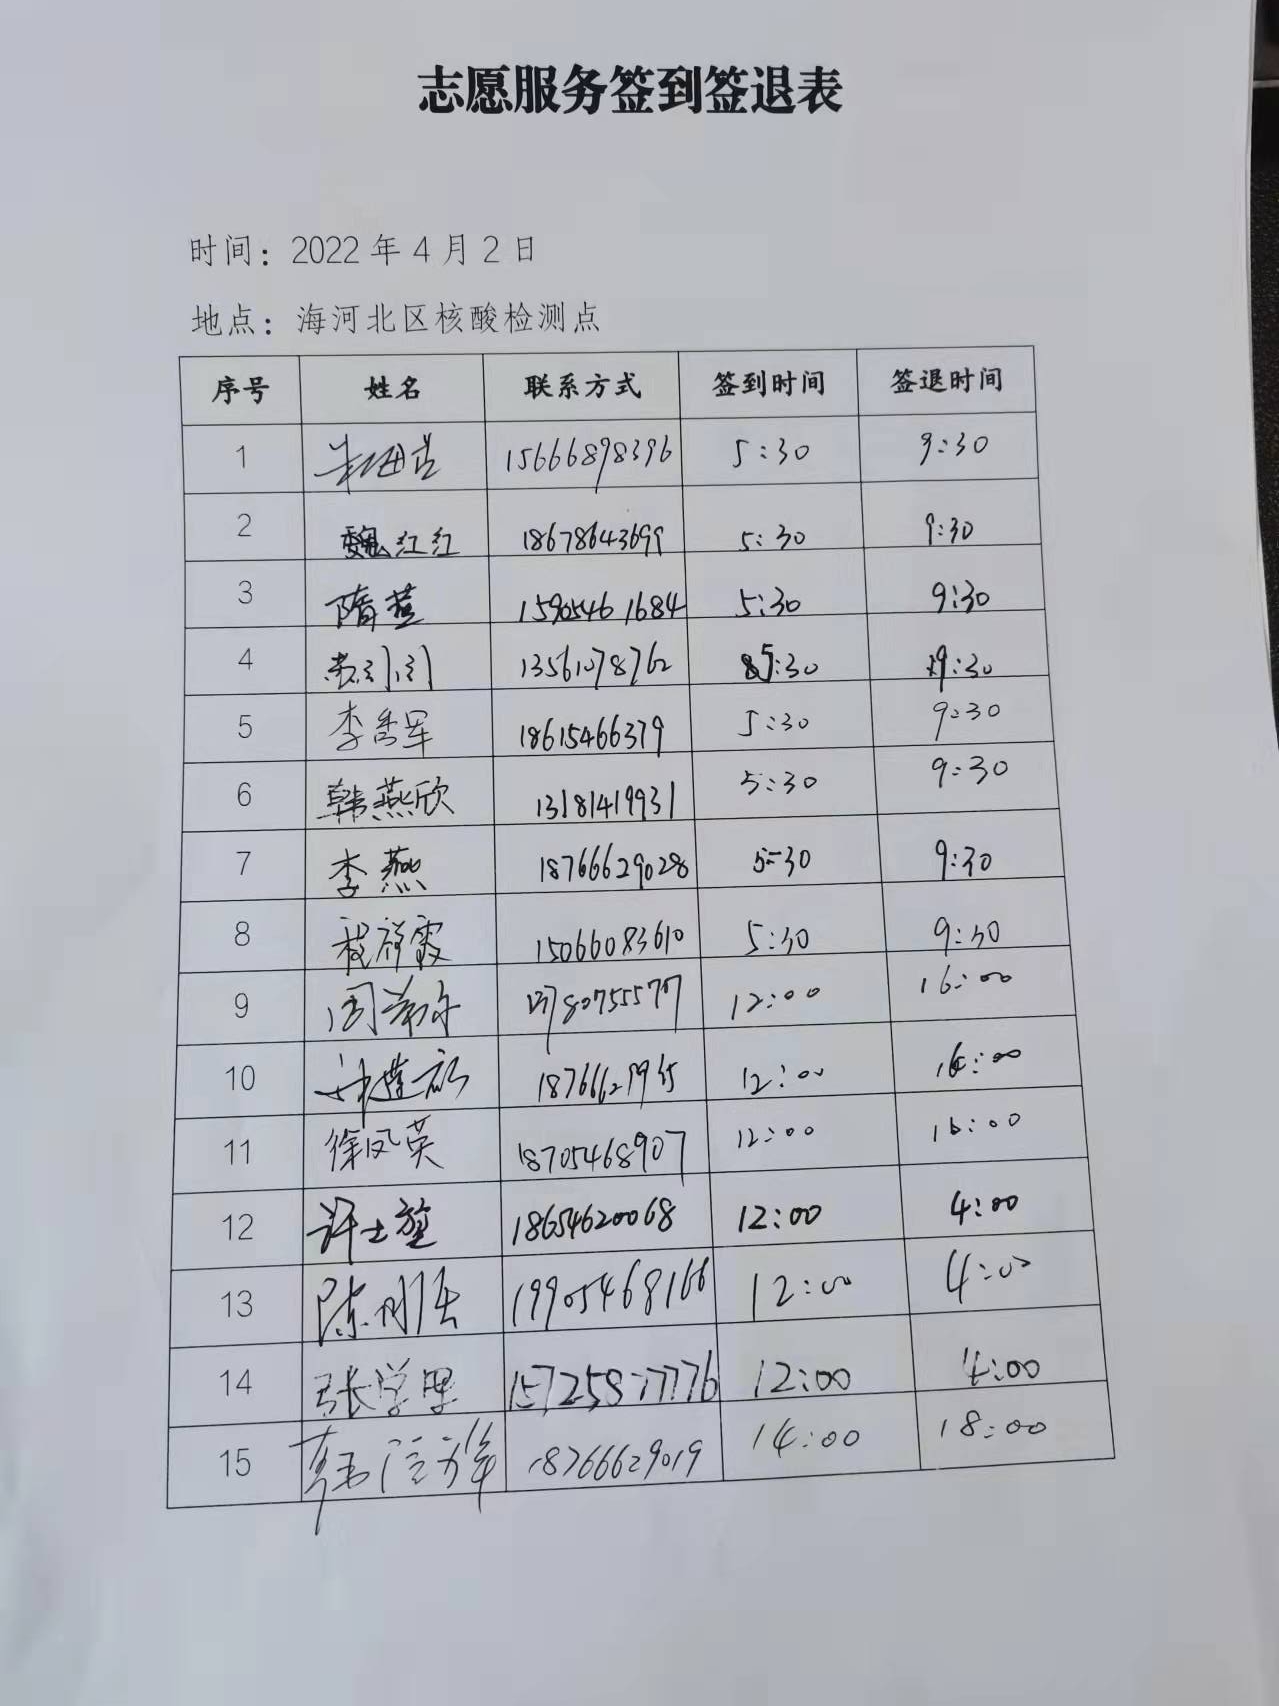 志愿服务签到签退表
时间：2022年4月2日
地点：海河北区核酸检测点
序号 姓名 联系方式 签到时间 签退时间
1 15666898396 5:30 9:30
2 魏红红 18678643699 5:30 9:30
3 隋萱 15905461684 5:30 9:30
4 13561078762 5:30 9:30
5 李秀军 18615466379 5:30 9:30
6 韩燕欣 13181419931 5:30 9:30
7 李燕 18766629028 5:30 9:30
8 程祥霞 15066083610 5:30 9:30
9 12:00 16:00
10 12:00 16:00
11 徐凤英 18705468907 12:00 16:00
12 18654620068 12:00 4:00
13 陈刚强 19905468166 12:00 4:00
14 张学黑 15725877776 12:00 4:00
15 18766629019 14:00 18:00